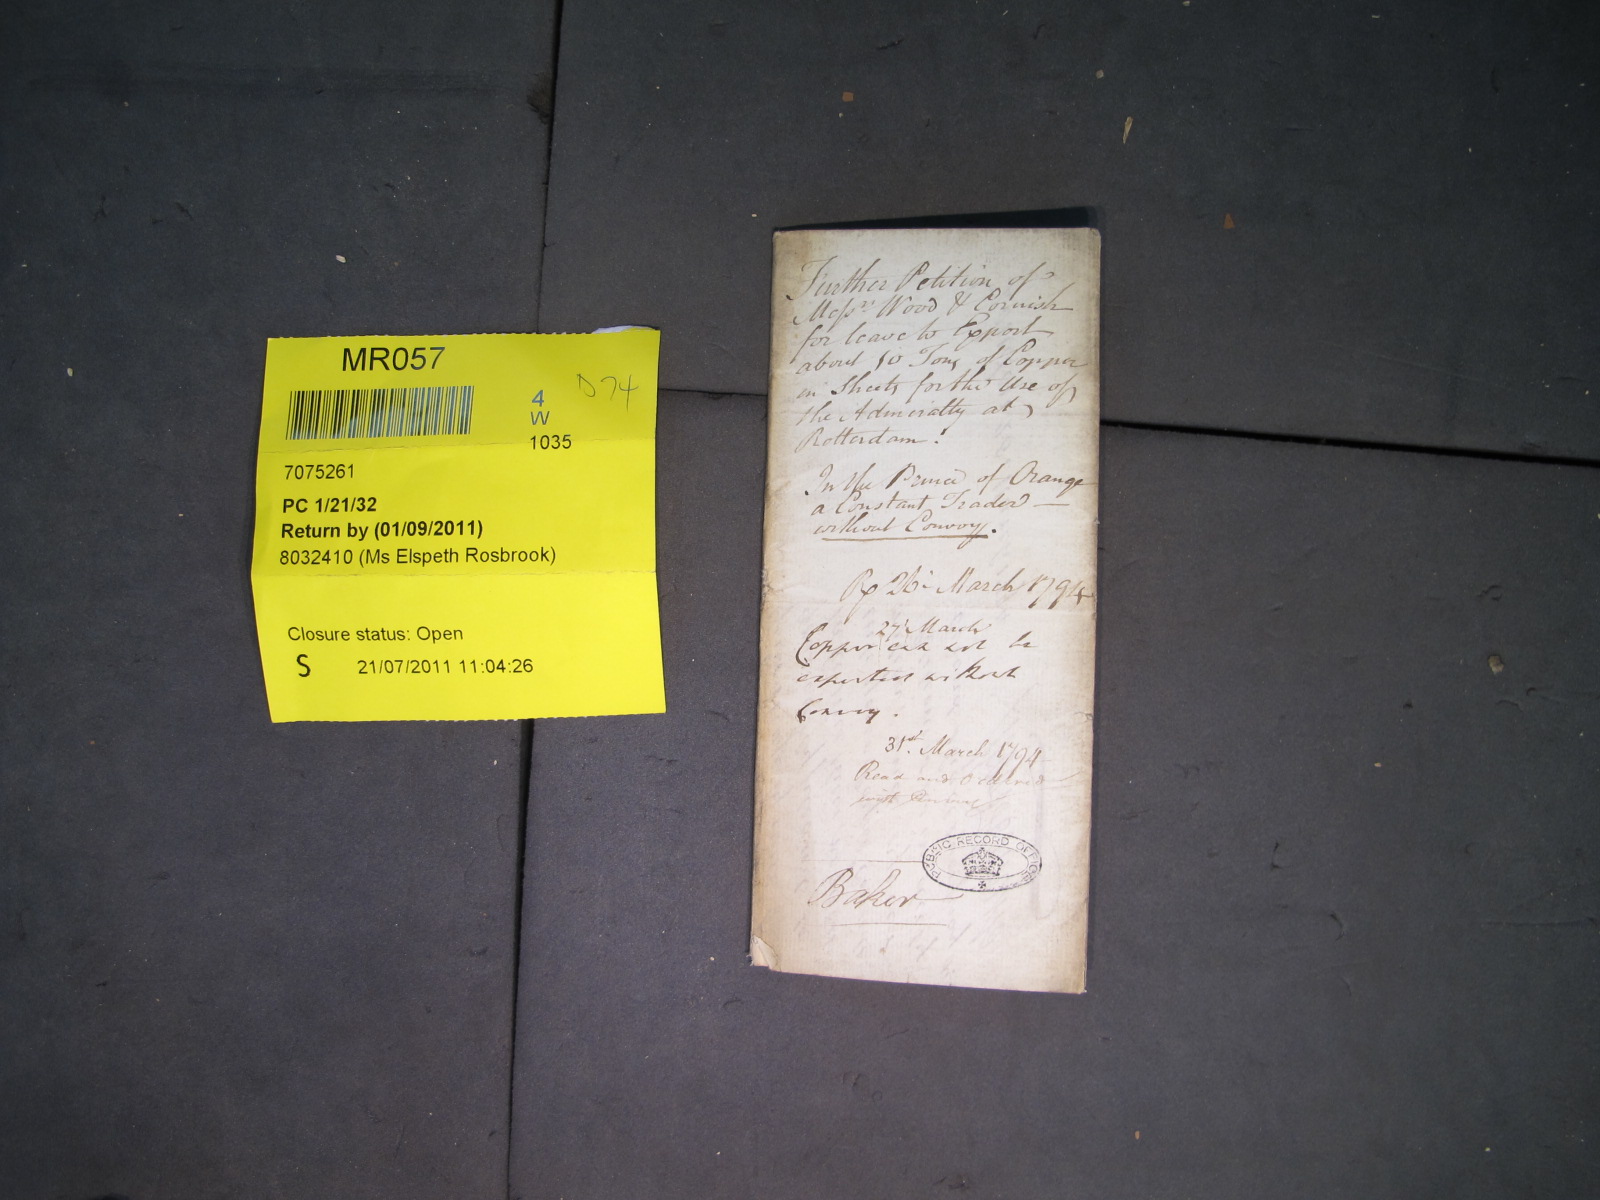 MR057
D74
4
W
1035
7075261
PC 1/21/32
Return by (01/09/2011)
8032410 (Ms Elspeth Rosbrook)
Closure status: Open
S 21/07/2011 11:04:26
Further Petition of
Messrs. Wood & Cornish
for leave to Export
about 10 Tons of Copper
in Sheets for the Use of
the Admiralty at
Rotterdam.
In the Prince of Orange
a Constant Trader
without Convoy.
Rx 26 March 1794
27 March
Copper can not be
exported without
Convoy.
31st. March 1794
Read and Ordered
PUBLIC RECORD OFFICE
Baker